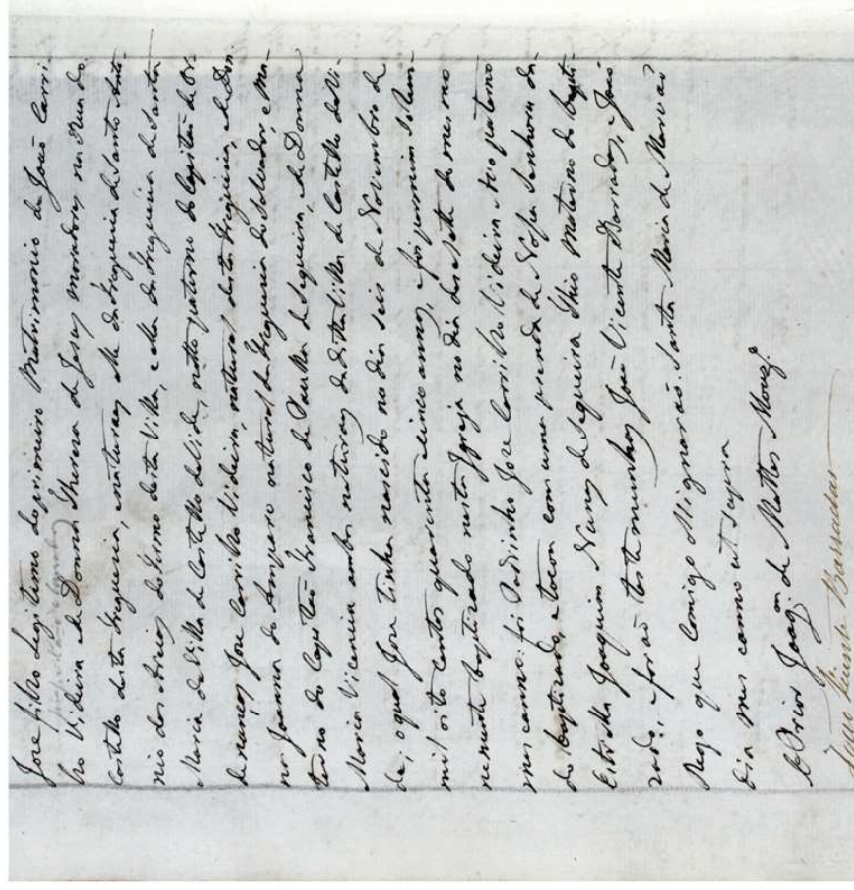 Jose filho legitimo do primeiro Matrimonio de João Carri-
lho Videira e de Donna Thereza de Jesus moradores na Rua do
Castello desta freguezia, e naturaes elle da freguezia de Santo Anto-
nio das Areias do termo desta Villa, e ella da freguezia de Santa
Maria da Villa de Castello de Vide, netto paterno do Capitão de Or-
denanças Jose Carrilho Videira, natural desta freguezia, e de Don-
na Joanna do Amparo natural da freguezia do Salvador, e Ma-
terno do Capitão Francisco de Paula de Sequeira, e de Donna
Maria Vicencia ambos naturaes da ditta Villa de Castello de Vi-
de; o qual Jose tinha nascido no dia seis de Novembro de
mil oito centos quarenta e cinco annos, e foi por mim solem-
nemente baptizado nesta Igreja no dia dezasete do mesmo
mes e anno: foi Padrinho Jose Carrilho Videira Avo paterno
do baptizado, e tocou com uma prenda de Nossa Senhora da
Estrella Joaquim Nunes de Sequeira thio Materno do bapti-
zado, e forão testemunhas João Vicente Barradas, e José
que comigo assignarão. Santa Maria de Marvão
dia mes e anno ut supra
O Prior Joaqm. de Mattos
João Vicente Barradas